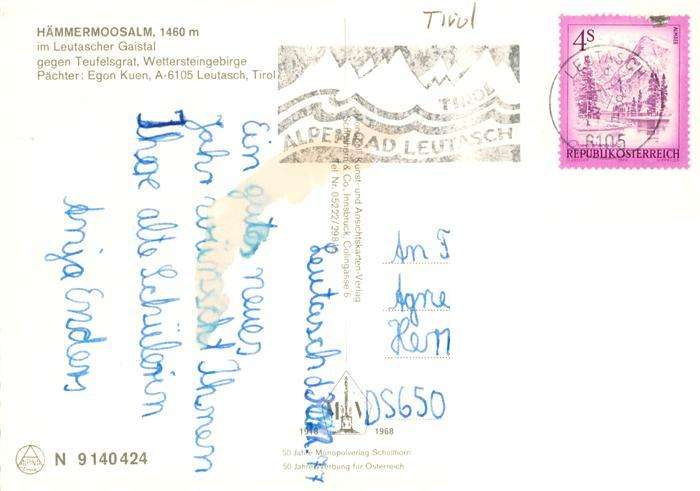 Tirol
HÄMMERMOOSALM, 1460 m
im Leutascher Gaistal
gegen Teufelsgrat, Wettersteingebirge
Pächter: Egon Kuen, A-6105 Leutasch, Tirol
TIROL
ALPENBAD LEUTASCH
4S
LEUTASCH
6105
REPUBLIK ÖSTERREICH
Leutasch
Ein gutes neues
Jahr wünscht Ihnen
Ihre alte Schülerin
Anja Enders
Kunst- und Ansichtskarten-Verlag
& Co. Innsbruck,
Tel Nr. 05222/
An F
Agne
Herr
DS650
1918 1968
50 Jahre Monopolverlag Schöllhorn
50 Jahre Werbung für Österreich
N 9 140 424